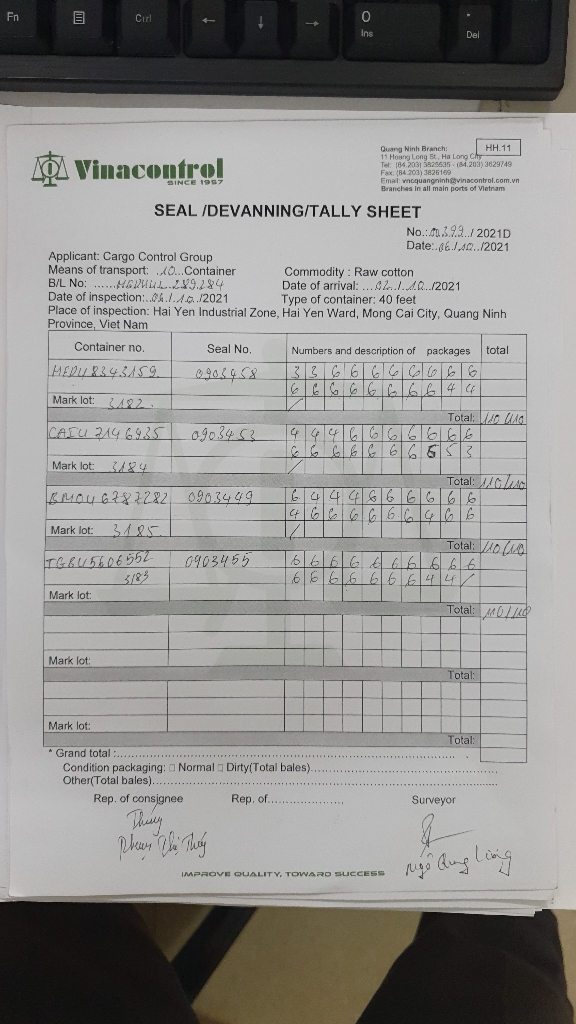 Fn
Ctrl
0
Ins
.
Del
Vinacontrol
SINCE 1957
Quang Ninh Branch:
HH.11
11 Hoang Long St., Ha Long City
Tel: (84.203) 3825635 - (84.203) 3829749
Fax: (84.203) 3826169
Email: vncquangninh@vinacontrol.com.vn
Branches in all main ports of Vietnam
SEAL /DEVANNING/TALLY SHEET
No.: /2021D
Date: 06/10/2021
Applicant: Cargo Control Group
Means of transport: 10 Container
Commodity : Raw cotton
B/L No:
Date of arrival: /10/2021
Date of inspection: /10/2021
Type of container: 40 feet
Place of inspection: Hai Yen Industrial Zone, Hai Yen Ward, Mong Cai City, Quang Ninh
Province, Viet Nam
Container no. Seal No. Numbers and description of packages total
MEDU8343159 0903458 3 3 6 6 6 6 6 6 6 6
6 6 6 6 6 6 6 6 4 4
Mark lot: 3182
Total: 110/110
CAIU 2146935 0903453 4 4 4 6 6 6 6 6 6 6
6 6 6 6 6 6 6 6 5 3
Mark lot: 3184
Total: 110/110
BMOU 6787282 0903449 6 4 4 4 6 6 6 6 6 6
4 6 6 6 6 6 6 4 6 6
Mark lot: 3185
Total: 110/110
TGBU5606552 0903455 6 6 6 6 6 6 6 6 6 6
3183 6 6 6 6 6 6 6 4 4 /
Mark lot:
Total: 110/110
Mark lot:
Total:
Mark lot:
Total:
* Grand total :
Condition packaging: □ Normal □ Dirty(Total bales)
Other(Total bales)
Rep. of consignee Rep. of Surveyor
Thúy
Phạm Thị Thúy
IMPROVE QUALITY, TOWARD SUCCESS